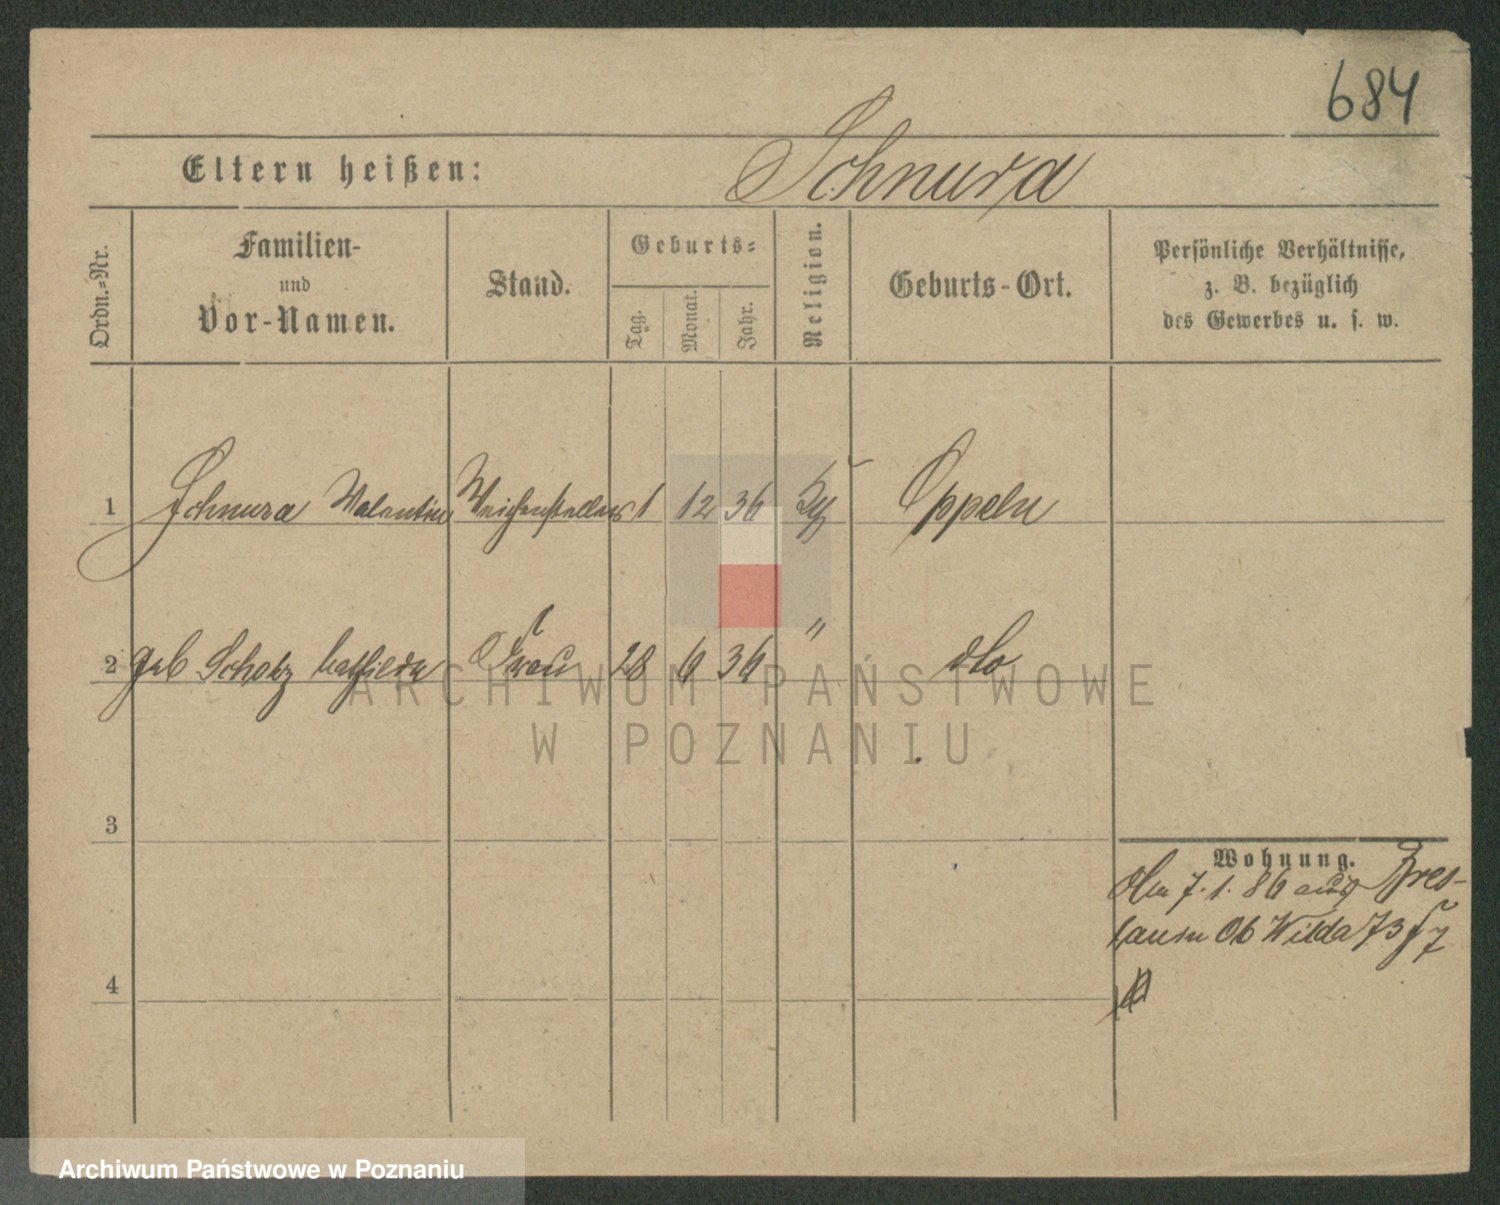 684
Eltern heißen: Schnura
Ordn.-Nr.
Familien-
und
Vor-Namen.
Stand.
Geburts-
Tag.
Monat.
Jahr.
Religion.
Geburts-Ort.
Persönliche Verhältnisse,
z. B. bezüglich
des Gewerbes u. s. w.
1 Schnura Valentin Weichensteller 1 12 36 Oppeln
2 geb Scholz Frau 28 6 36 " dto
ARCHIWUM PAŃSTWOWE
W POZNANIU
3
Wohnung.
7. 1. 86 aus Bres-
lau Ob Wilda 73
4
Archiwum Państwowe w Poznaniu